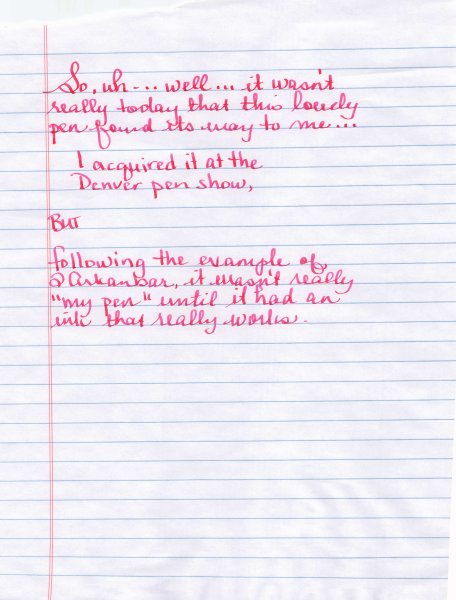 So, uh --.. well... it wasn't
really today that this lovely
pen found its way to me...
I acquired it at the
Denver pen show,
BUT
following the example of
2Arkansas, it wasn't really
"my pen" until it had an
ink that really works.